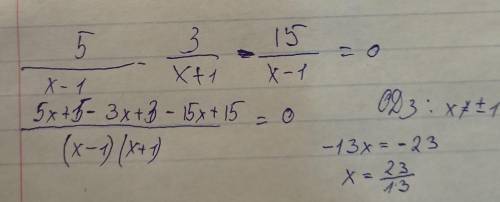 5/(x-1) - 3/(x+1) - 15/(x-1) = 0
(5x+5-3x+3-15x+15)/((x-1)(x+1)) = 0
ОДЗ: x≠±1
-13x = -23
x = 23/13